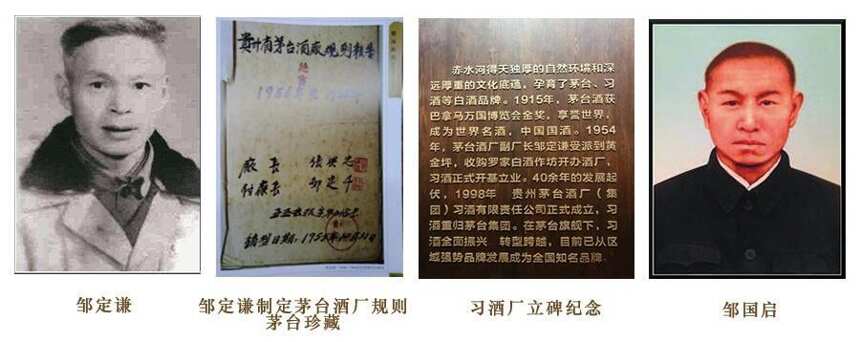 贵州省茅台酒厰规则报告
厰长 张兴忠
付厰长
赤水河得天独厚的自然环境和深
远厚重的文化底蕴，孕育了茅台、习
酒等白酒品牌。1915年，茅台酒获
巴拿马万国博览会金奖，享誉世界，
成为世界名酒，中国国酒。1954
年，茅台酒厂副厂长邹定谦受派到黄
金坪，收购罗家白酒作坊开办酒厂，
习酒正式开基立业。40余年的发展起
伏，1998年 贵州茅台酒厂（集
团）习酒有限责任公司正式成立，习
酒重归茅台集团。在茅台旗舰下，习
酒全面振兴 转型跨越，目前已从区
域强势品牌发展成为全国知名品牌。
邹定谦
邹定谦制定茅台酒厂规则
茅台珍藏
习酒厂立碑纪念
邹国启